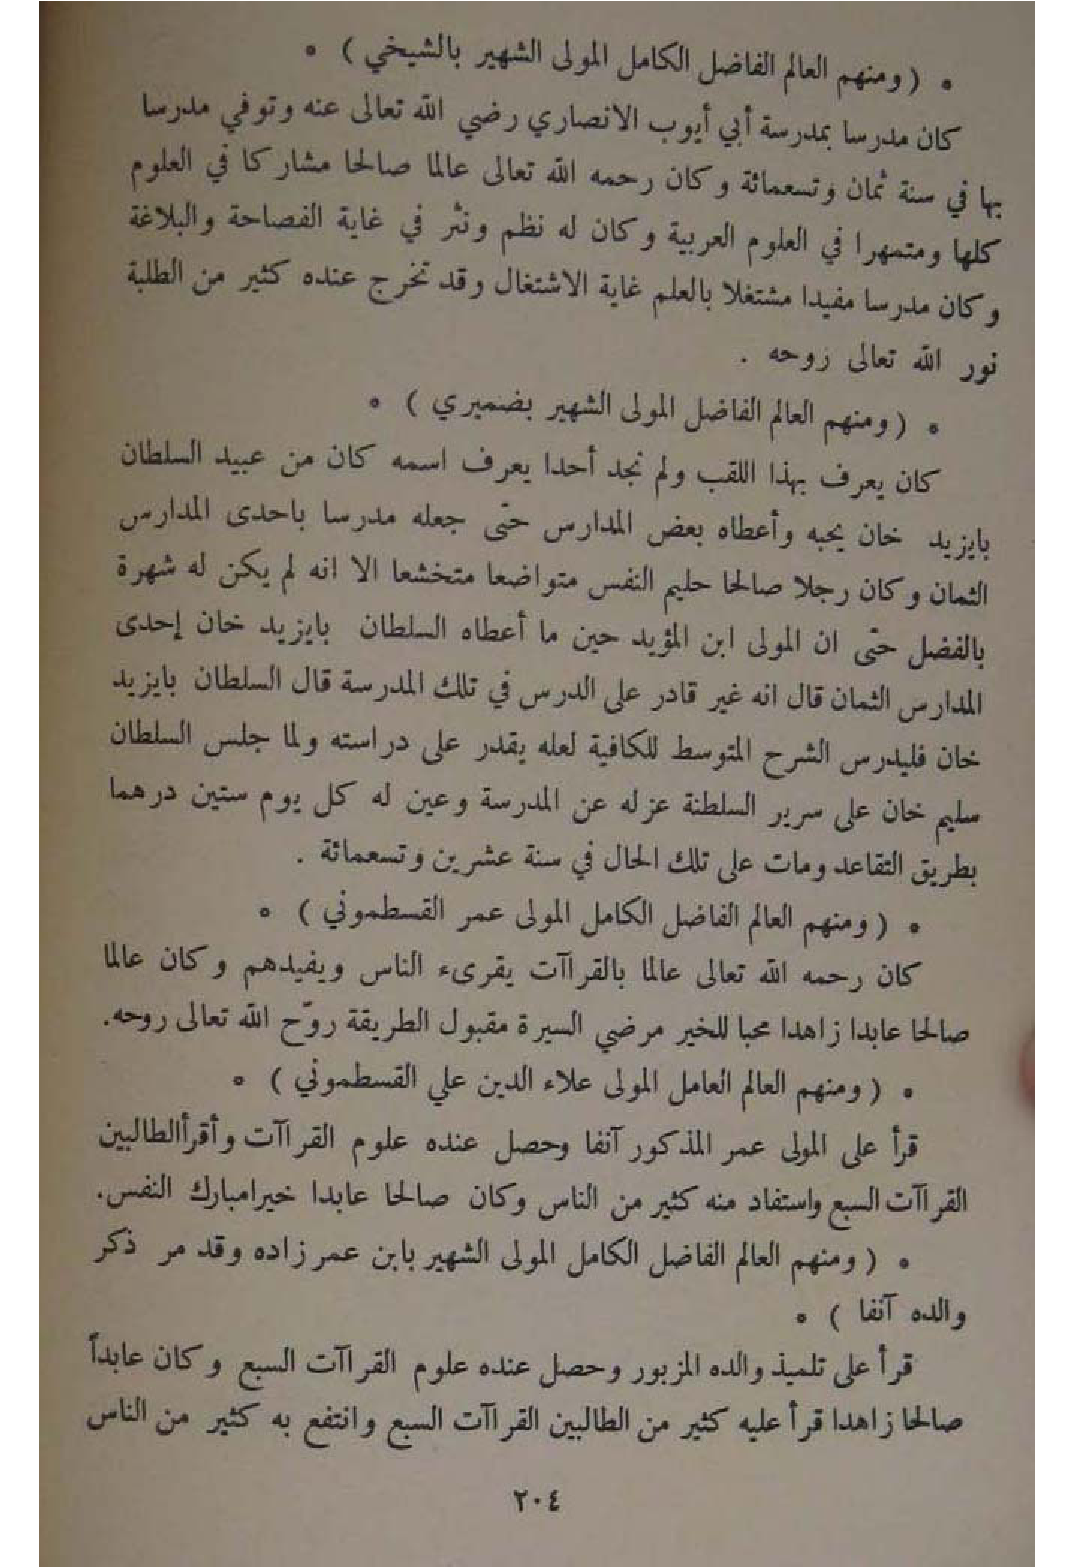 • ( ومنهم العالم الفاضل الكامل المولى الشهير بالشيخي ) •
كان مدرسا بمدرسة أبي أيوب الانصاري رضي الله تعالى عنه وتوفي مدرسا
بها في سنة ثمان وتسعمائة وكان رحمه الله تعالى عالما صالحا مشاركا في العلوم
كلها ومتمهرا في العلوم العربية وكان له نظم ونثر في غاية الفصاحة والبلاغة
وكان مدرسا مفيدا مشتغلا بالعلم غاية الاشتغال وقد تخرج عنده كثير من الطلبة
نور الله تعالى روحه .
• ( ومنهم العالم الفاضل المولى الشهير بضميري ) •
كان يعرف بهذا اللقب ولم نجد أحدا يعرف اسمه كان من عبيد السلطان
بايزيد خان يحبه وأعطاه بعض المدارس حتى جعله مدرسا باحدى المدارس
الثمان وكان رجلا صالحا حليم النفس متواضعا متخشعا الا انه لم يكن له شهرة
بالفضل حتى ان المولى ابن المؤيد حين ما أعطاه السلطان بايزيد خان إحدى
المدارس الثمان قال انه غير قادر على الدرس في تلك المدرسة قال السلطان بايزيد
خان فليدرس الشرح المتوسط للكافية لعله يقدر على دراسته ولما جلس السلطان
سليم خان على سرير السلطنة عزله عن المدرسة وعين له كل يوم ستين درهما
بطريق التقاعد ومات على تلك الحال في سنة عشرين وتسعمائة .
• ( ومنهم العالم الفاضل الكامل المولى عمر القسطموني ) •
كان رحمه الله تعالى عالما بالقراآت يقرىء الناس ويفيدهم وكان عالما
صالحا عابدا زاهدا محبا للخير مرضي السيرة مقبول الطريقة روّح الله تعالى روحه.
• ( ومنهم العالم العامل المولى علاء الدين علي القسطموني ) •
قرأ على المولى عمر المذكور آنفا وحصل عنده علوم القراآت وأقرأالطالبين
القراآت السبع واستفاد منه كثير من الناس وكان صالحا عابدا خيرامبارك النفس.
• ( ومنهم العالم الفاضل الكامل المولى الشهير بابن عمر زاده وقد مر ذكر
والده آنفا ) •
قرأ على تلميذ والده المزبور وحصل عنده علوم القراآت السبع وكان عابداً
صالحا زاهدا قرأ عليه كثير من الطالبين القراآت السبع وانتفع به كثير من الناس
٢٠٤